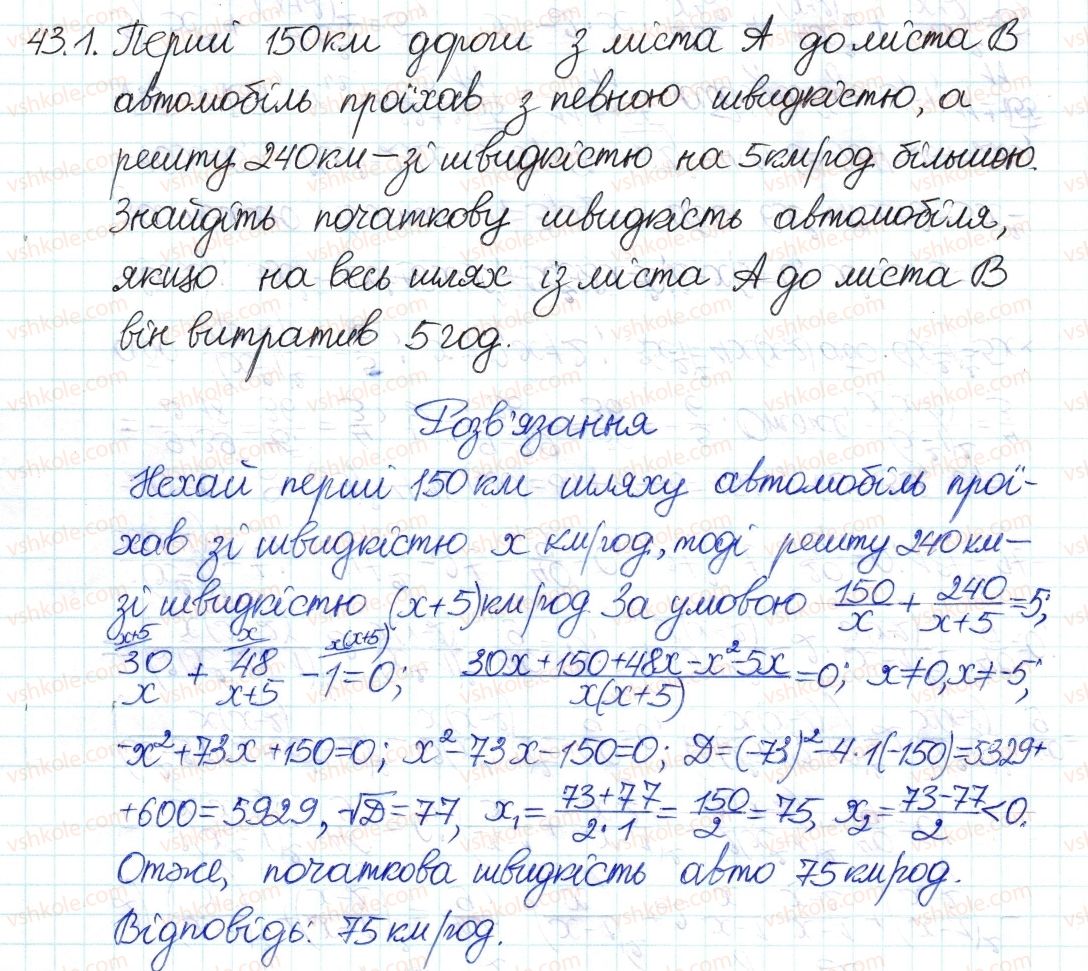 43.1. Перші 150 км дороги з міста А до міста В
автомобіль проїхав з певною швидкістю, а
решту 240 км – зі швидкістю на 5 км/год більшою.
Знайдіть початкову швидкість автомобіля,
якщо на весь шлях із міста А до міста В
він витратив 5 год.
Розв'язання
Нехай перші 150 км шляху автомобіль прої-
хав зі швидкістю x км/год, тоді решту 240 км –
зі швидкістю (x+5) км/год. За умовою 150/x + 240/(x+5) = 5;
x+5 x x(x+5)
30/x + 48/(x+5) - 1 = 0; (30x+150+48x-x²-5x)/(x(x+5)) = 0; x≠0, x≠-5;
-x²+73x+150=0; x²-73x-150=0; D=(-73)²-4·1(-150)=5329+
+600=5929, √D=77, x₁=(73+77)/(2·1)=150/2=75, x₂=(73-77)/2<0.
Отже, початкова швидкість авто 75 км/год.
Відповідь: 75 км/год.
vshkole.com